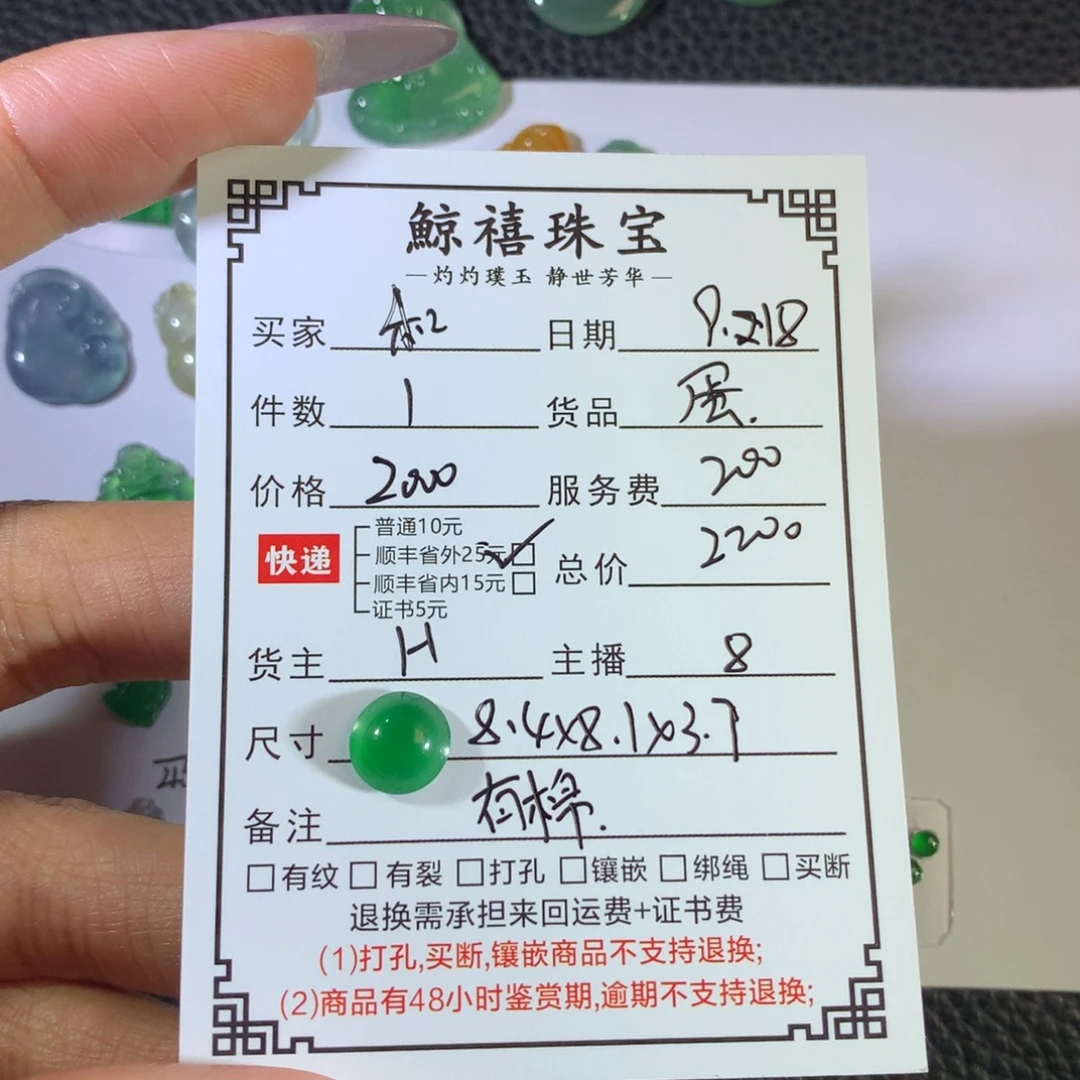 鲸禧珠宝
—灼灼璞玉 静世芳华—
买家 日期
件数 1 货品 蛋.
价格 2000 服务费 200
快递
普通10元
顺丰省外25元 ✓ □ 总价 2200
顺丰省内15元 □
证书5元
货主 H 主播 8
尺寸 8.4x8.1x3.7
备注 有棉.
□有纹 □有裂 □打孔 □镶嵌 □绑绳 □买断
退换需承担来回运费+证书费
(1)打孔,买断,镶嵌商品不支持退换;
(2)商品有48小时鉴赏期,逾期不支持退换;